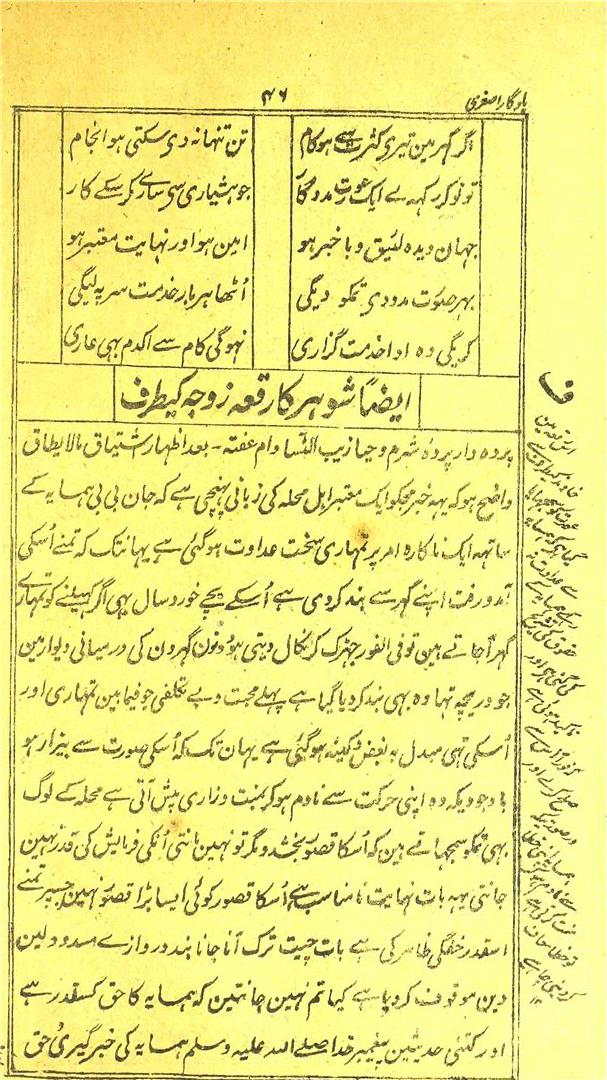 یادگار اصغری
۴۶
اگر گہر مین تیری کثرت سے ہو کام
تن تنہا نہ دی سکتی ہو انجام
تو نوکر رکہہ لے ایک عورت مددگار
جو ہشیاری سی ساری کر سکے کار
جہان دیدہ لئیق و با خبر ہو
امین ہو اور نہایت معتبر ہو
بہر صورت مدد دی تمکو دیگی
اُٹھا ہر بار خدمت سر پہ لیگی
کریگی وہ ادا خدمت گزاری
نہوگی کام سے اکدم بہی عاری
ایضاً شوہر کا رقعہ زوجہ کیطرف
پردہ دار پردۂ شرم و حیا زیب النسا دام عفتہ ۔ بعد اظہار اشتیاق مالایطاق
واضح ہو کہ یہہ خبر مجکو ایک معتبر اہل محلہ کی زبانی پہنچی ہے کہ جان بی بی ہمسایہ کے
ساتہہ ایک ناکارہ امر پر تمہاری سخت عداوت ہوگئی ہے یہانتک کہ تمنے اُسکی
آمدورفت اپنے گہر سے بند کردی ہے اُسکے بچے خورد سال بہی اگر کہیلنے کو تمہارے
گہر آجاتے ہین تو فی الفور جہڑک کر نکال دیتی ہو دونون گہرون کی درمیانی دیوار مین
جو دریچہ تہا وہ بہی بند کردیا گیا ہے پہلے محبت و بے تکلفی جو فیما بین تمہاری اور
اُسکی تہی مبدل بہ بغض و کینہ ہوگئی ہے یہان تک کہ اُسکی صورت سے بیزار ہو
باوجودیکہ وہ اپنی حرکت سے نادم ہوکر بمنت و زاری پیش آتی ہے محلہ کے لوگ
بہی تمکو سمجہاتے ہین کہ اُسکا قصور بخشدو مگر تو نہین مانتی اُنکی فرمایش کی قدر نہین
جانتی یہہ بات نہایت نامناسب ہے اُسکا قصور کوئی ایسا بڑا قصور نہین جسپر تمنے
اسقدر خفگی ظاہر کی ہے بات چیت ترک آنا جانا بند دروازے مسدود لین
دین موقوف کردیا ہے کیا تم نہین جانتین کہ ہمسایہ کا حق کسقدر ہے
اور کتنی حدیثین پیغمبر خدا صلے اللہ علیہ وسلم ہمسایہ کی خبر گیری و حق
ف